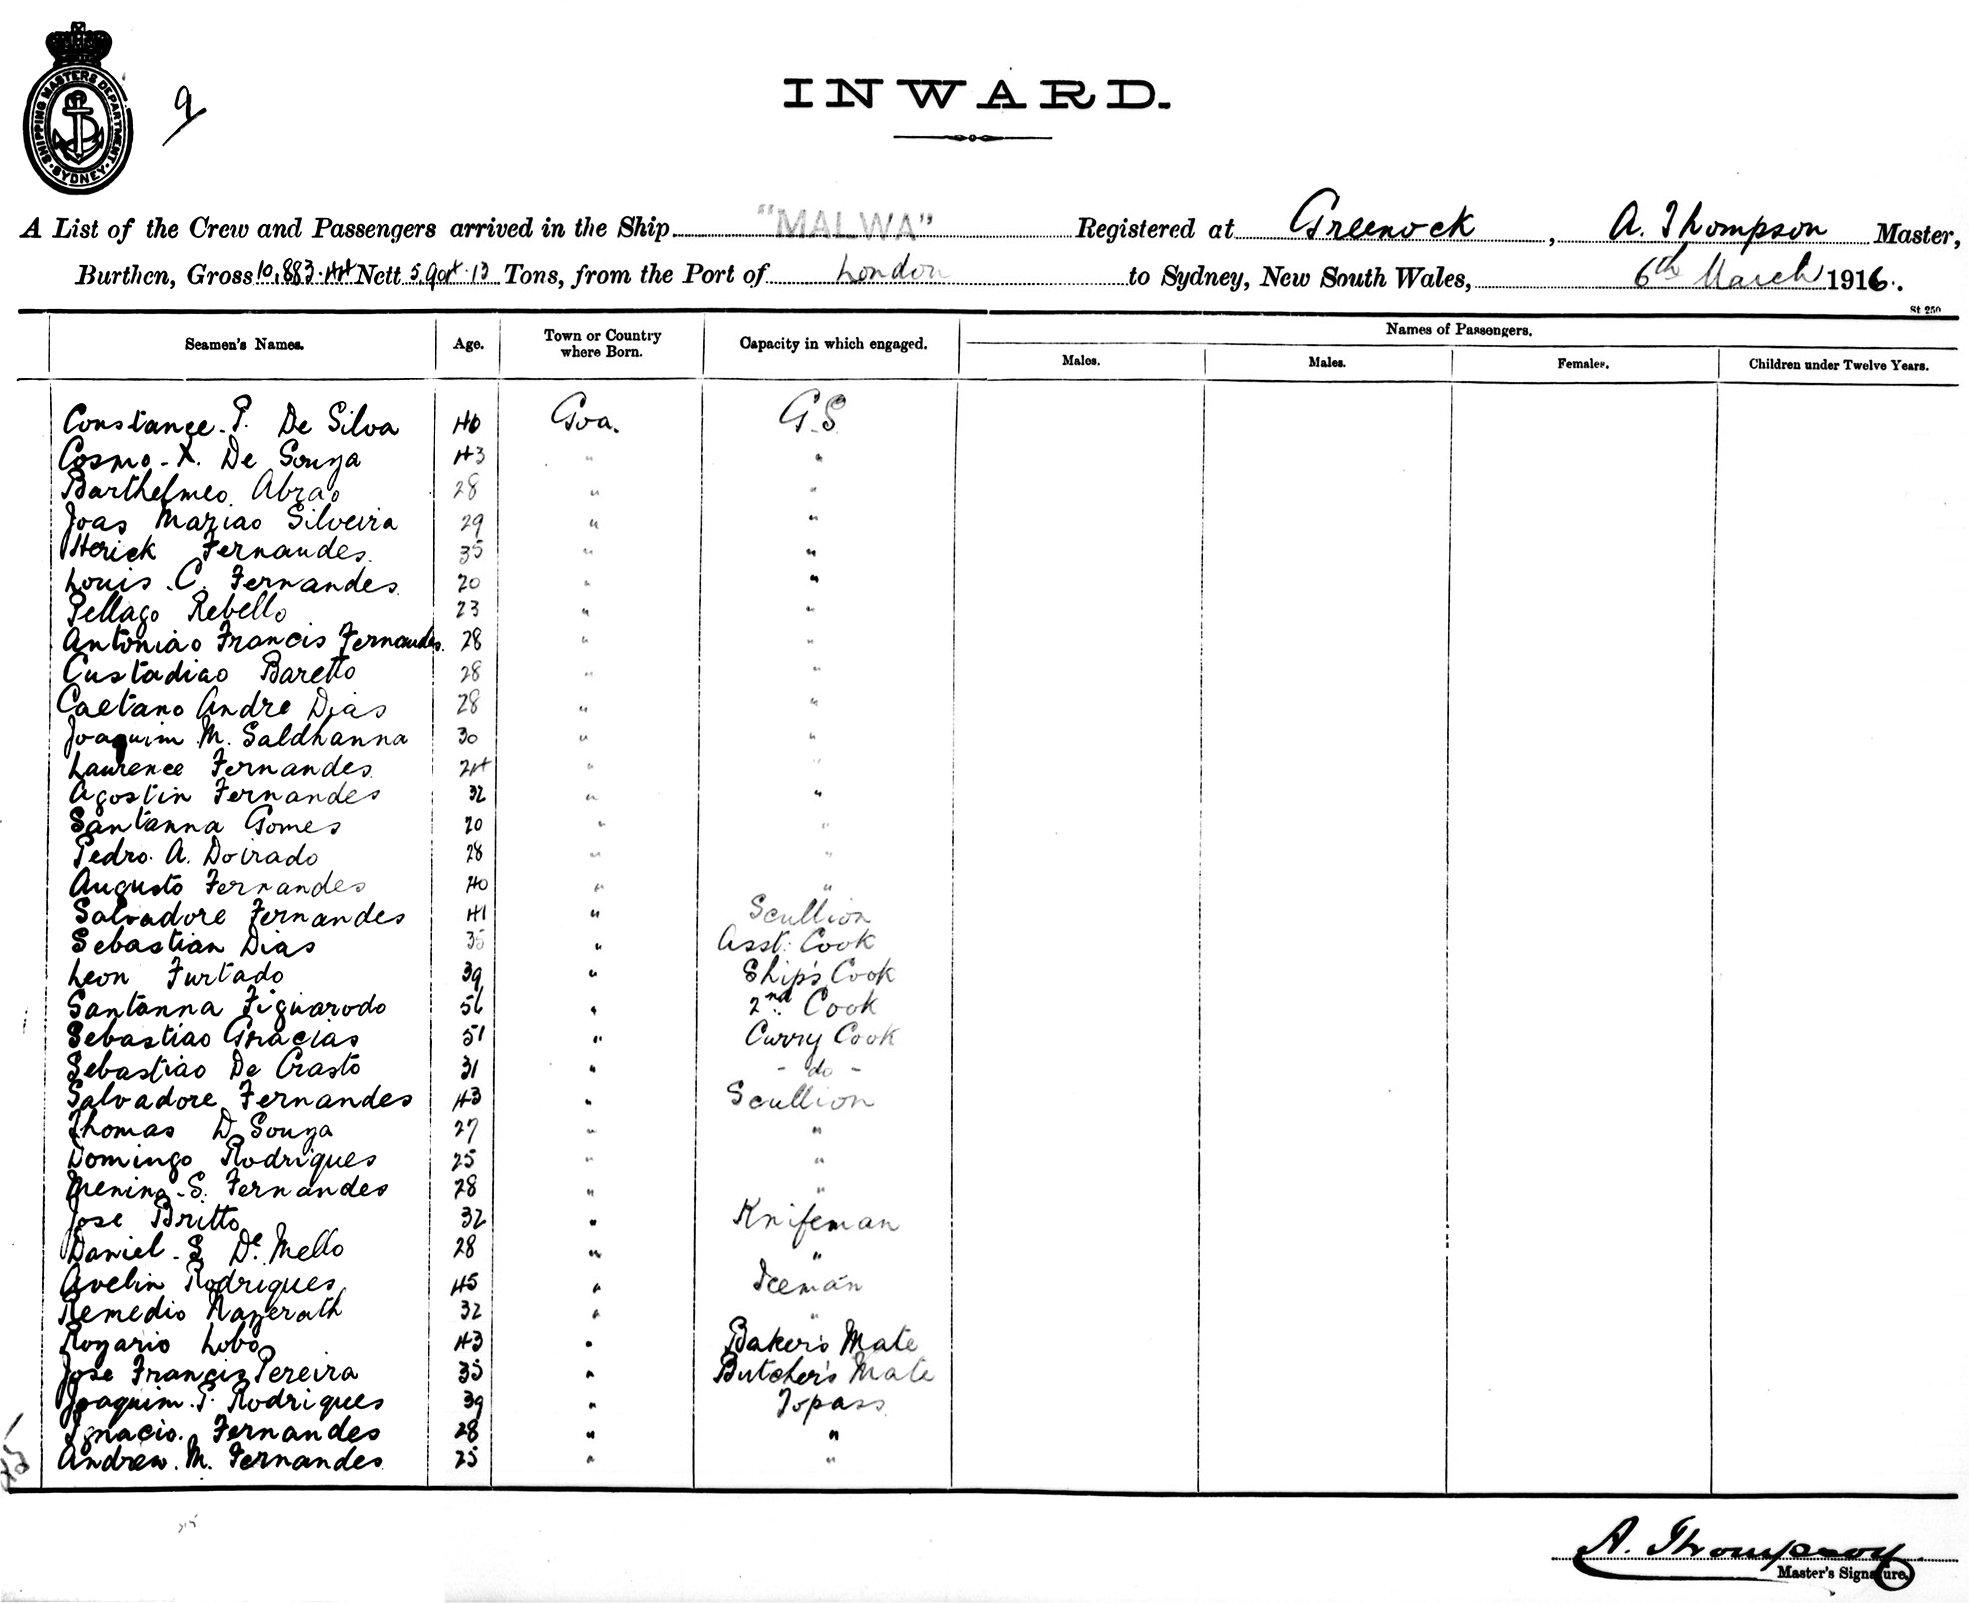 SHIPPING MASTERS DEPARTMENT · SYDNEY ·
9
INWARD.
A List of the Crew and Passengers arrived in the Ship "MALWA" Registered at Greenock, A. Thompson Master,
Burthen, Gross 10,883.44 Nett 5,904.13 Tons, from the Port of London to Sydney, New South Wales, 6th March 1916.
St 250
Seamen's Names. Age. Town or Country where Born. Capacity in which engaged. Names of Passengers.
Males. Males. Females. Children under Twelve Years.
Constance. P. De Silva 40 Goa. G.S.
Cosmo. X. De Souza 43 " "
Barthelmeo Abrao 28 " "
Joas Mariao Silveira 29 " "
Herick Fernandes. 35 " "
Louis. C. Fernandes. 20 " "
Pellago Rebello 23 " "
Antoniao Francis Fernandes. 28 " "
Custadiao Baretto 28 " "
Caetano Andre Dias 28 " "
Joaquim M. Saldhanna 30 " "
Laurence Fernandes. 24 " "
Agostin Fernandes 32 " "
Santanna Gomes 20 " "
Pedro. A. Doirado 28 " "
Augusto Fernandes 40 " "
Salvadore Fernandes 41 " Scullion
Sebastian Dias 35 " Asst. Cook
Leon Furtado 39 " Ship's Cook
Santanna Figuarodo 56 " 2nd Cook
Sebastiao Gracias 51 " Curry Cook
Sebastiao De Crasto 31 " - do -
Salvadore Fernandes 43 " Scullion
Thomas D Souza 27 " "
Domingo Rodrigues 25 " "
Menino. S. Fernandes 28 " "
Jose Britto 32 " Knifeman
Daniel. S De. Mello 28 " "
Avelin Rodrigues 45 " Iceman
Remedio Nazerath 32 " "
Rozario Lobo 43 " Baker's Mate
Jose Francis Pereira 35 " Butcher's Mate
Joaquim. P. Rodrigues 39 " Topass
Ignacio. Fernandes 28 " "
Andrew. M. Fernandes 25 " "
A. Thompson
Master's Signature.